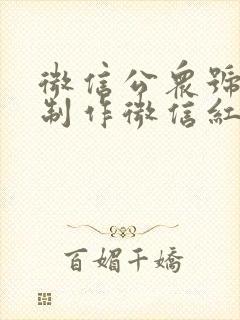 微信公眾號
制作微信紅
百媚千嬌